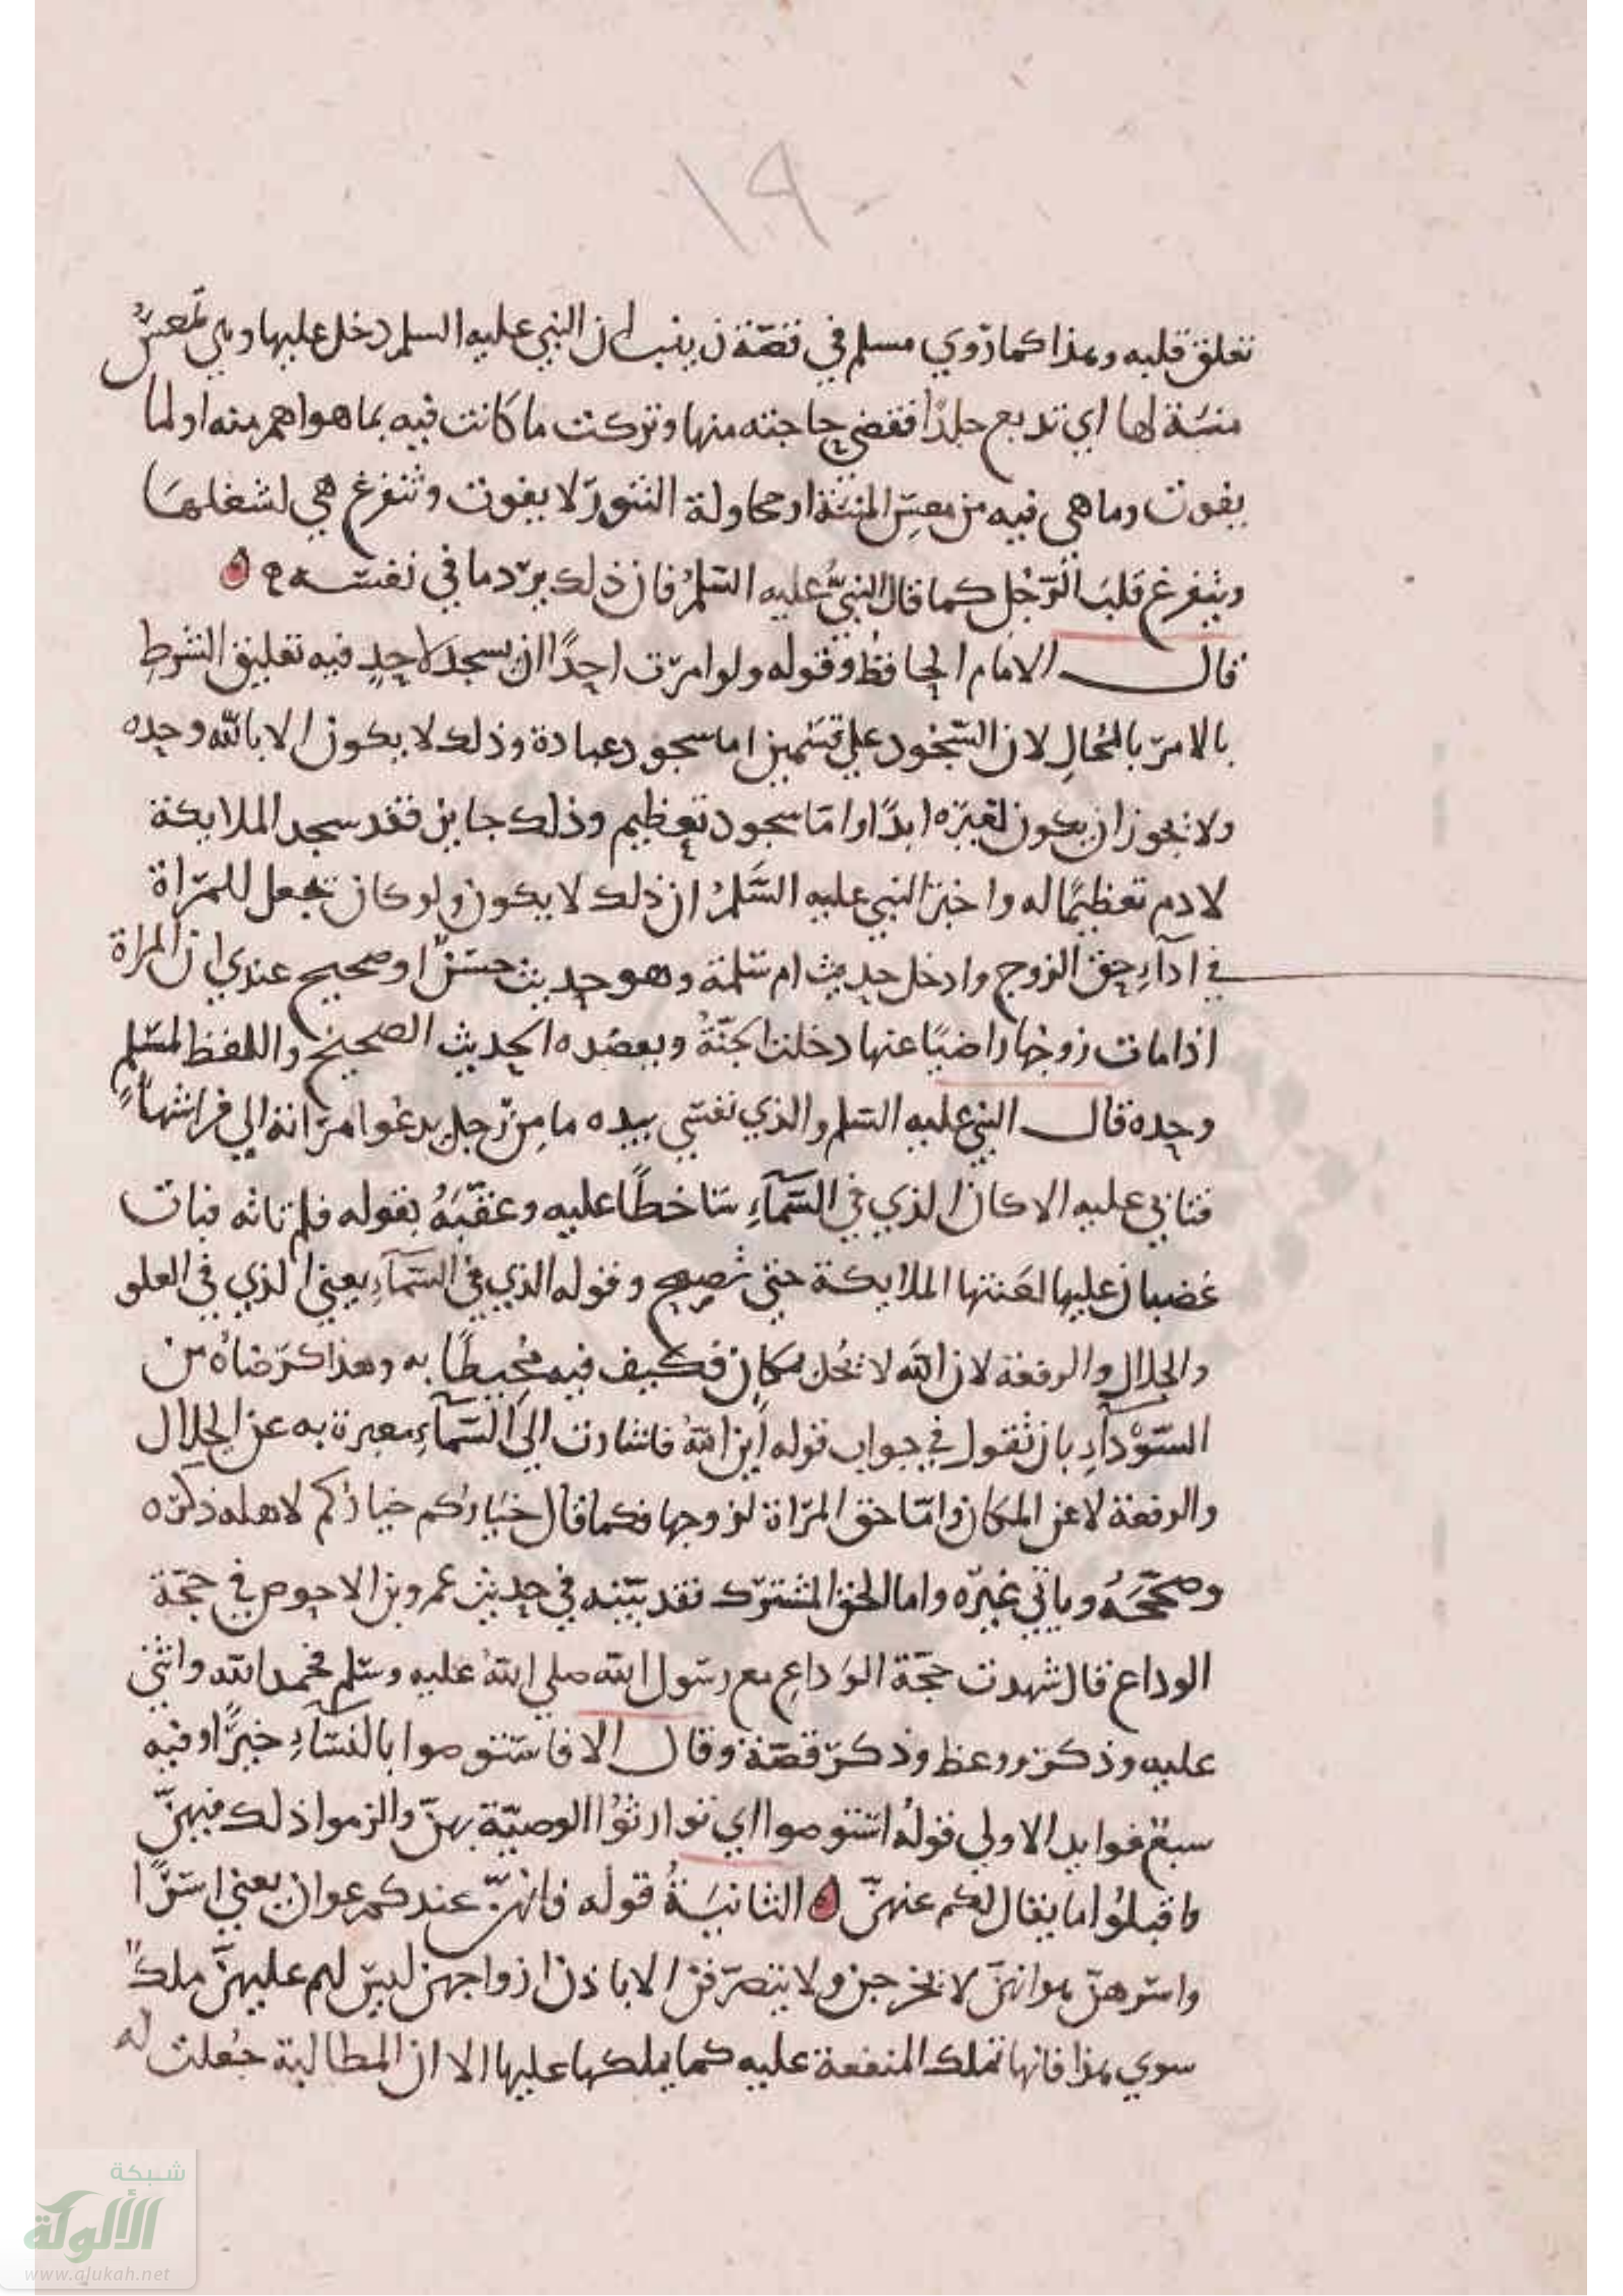 ١٩
تعلق قلبه وهذا كما رَوي مسلم في قصّة زينب ان النبي عليه السلم دخل عليها وهي تمعس
منيئة لها اي تدبع جلدًا فقضي حاجته منها وتركت ما كانت فيه بما هو اهم منه او لما
يفوت وما هي فيه من معسِ المنيئة او محاولة التنور لا يفوت وتتفرغ هي لشغلها
ويتفرغ قلبَ الرّجُل كما قال النبيُّ عليه السّلمُ فان ذلك يردّ ما في نفسه
قال الامام الحافظُ وقوله ولو امرت احدًا ان يسجد لاحدٍ فيه تعليق الشرطِ
بالامر بالمُحالِ لان السّجُود علي قسمين اما سجود عبادة وذلك لا يكون الا بالله وحده
ولا يجوز ان يكون لغيره ابدًا واما سجود تعظيم وذلك جايز فقد سجد الملايكة
لادم تعظيمًا له واخبر النبي عليه السَّلمُ ان ذلك لا يكون ولو كان يجعل للمراة
في اداءِ حق الزوج وادخل حديث ام سلمة وهو حديث حسنٌ او صحيح عندي ان المراة
اذا مات زوجها راضيًا عنها دخلت الجنّةُ ويعضده الحديث الصحيح واللفظ لمسلم
وحده قال النبي عليه السلم والذي نفسي بيده ما مِن رّجل يدعُوا امراته الي فراشها
فتابي عليه الا كان الذي في السَّمآءِ سَاخطًا عليه وعقّبَهُ بقوله فلم تاته فبات
غضبان عليها لعَنتها الملايكة حتي تُصبح وقوله الذي في السَّمآءِ يعني الذي في العلو
والجلال والرفعة لان الله لا يحُل بمكانٍ فكيف فيه مُحيطًا به وهذا كرضاهُ من
السّوْدآءِ بان تقول في جواب قوله اين اللهُ فاشارت الي السَّمآءِ معبرة به عن الجلال
والرفعة لا عن المكان وامّا حق المرَاة لزوجها فكما قال خيَاركم خيارُكم لاهله ذكره
وصحّحَهُ وياتي غيره واما الحق المشترك فقد بيّنه في حديث عمرو بن الاحوص في حجّة
الوداع قال شهدت حجّة الوَداعِ مع رسول الله صلي اللهُ عليه وسلم فحمد الله واثني
عليه وذكر ووعظ وذكر قصّة وقال الا فاستوصوا بالنسَآءِ خيرًا وفيه
سبعُ فوايد الاولي قولُه استوصوا اي توارثوُا الوصيّة بهنّ والزموا ذلك فيهنّ
واقبلوُا ما يقال لكم عنهنّ الثانيَةُ قوله فانهنّ عندكم عوان يعني اسرًا
واسرهنّ هو انهنّ لا يخرجن ولا يتصرّفن الا باذن ازواجهن ليس لهم عليهنَّ ملكٌ
سوي هذا فانها تملك المنفعة عليه كما يملكها عليها الا ان المطالبة جُعلت له
شبكة
الألوكة
www.alukah.net